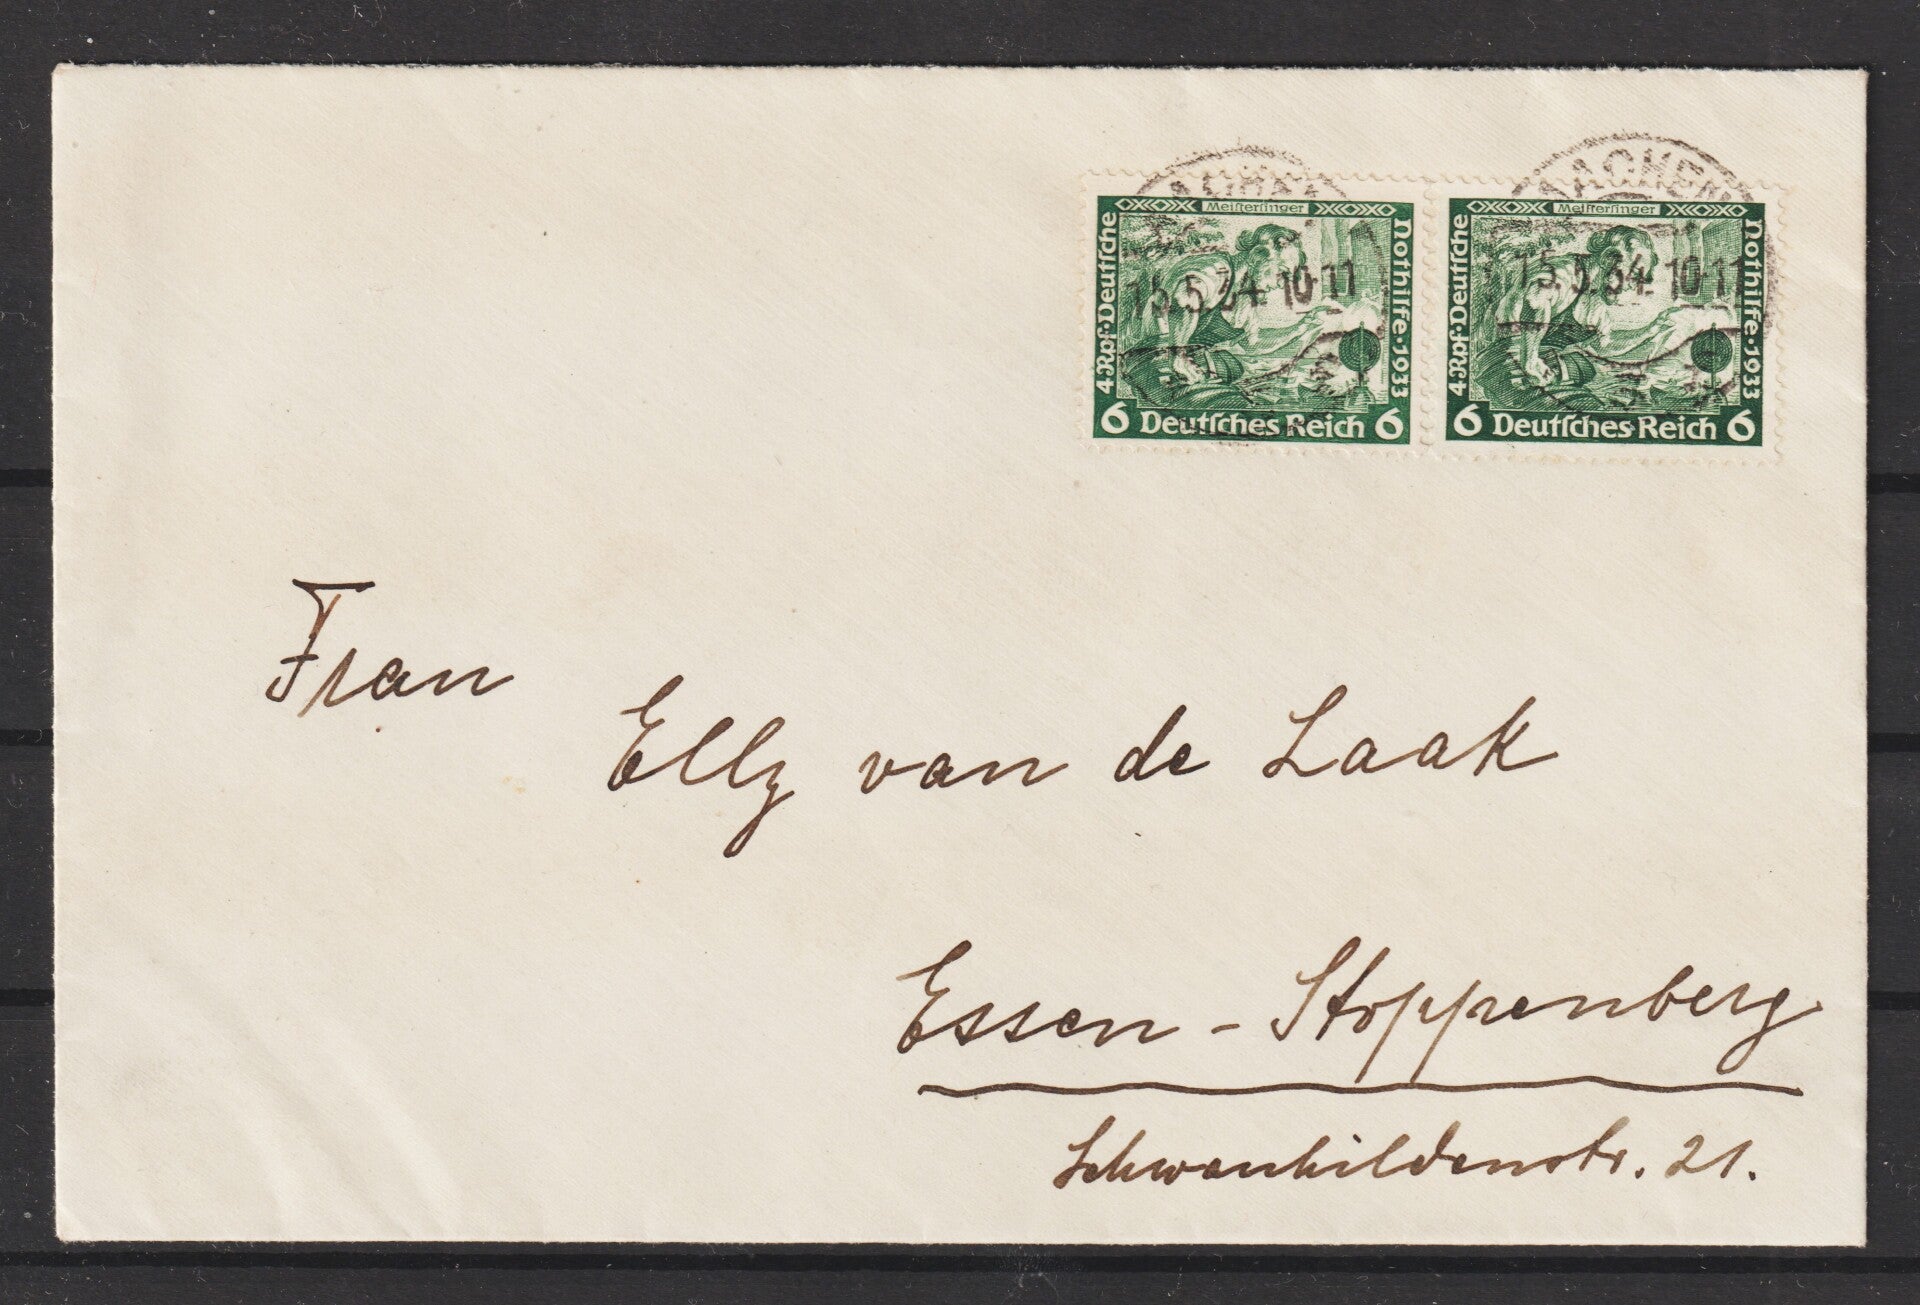 AACHEN
AACHEN
Meistersinger
Meistersinger
4 Rpf·Deutsche
Nothilfe·1933
4 Rpf·Deutsche
Nothilfe·1933
15.5.34. 10-11
15.5.34. 10-11
6 Deutsches Reich 6
6 Deutsches Reich 6
Frau
Elly van de Laak
Essen - Stoppenberg
Schwanhildenstr. 21.